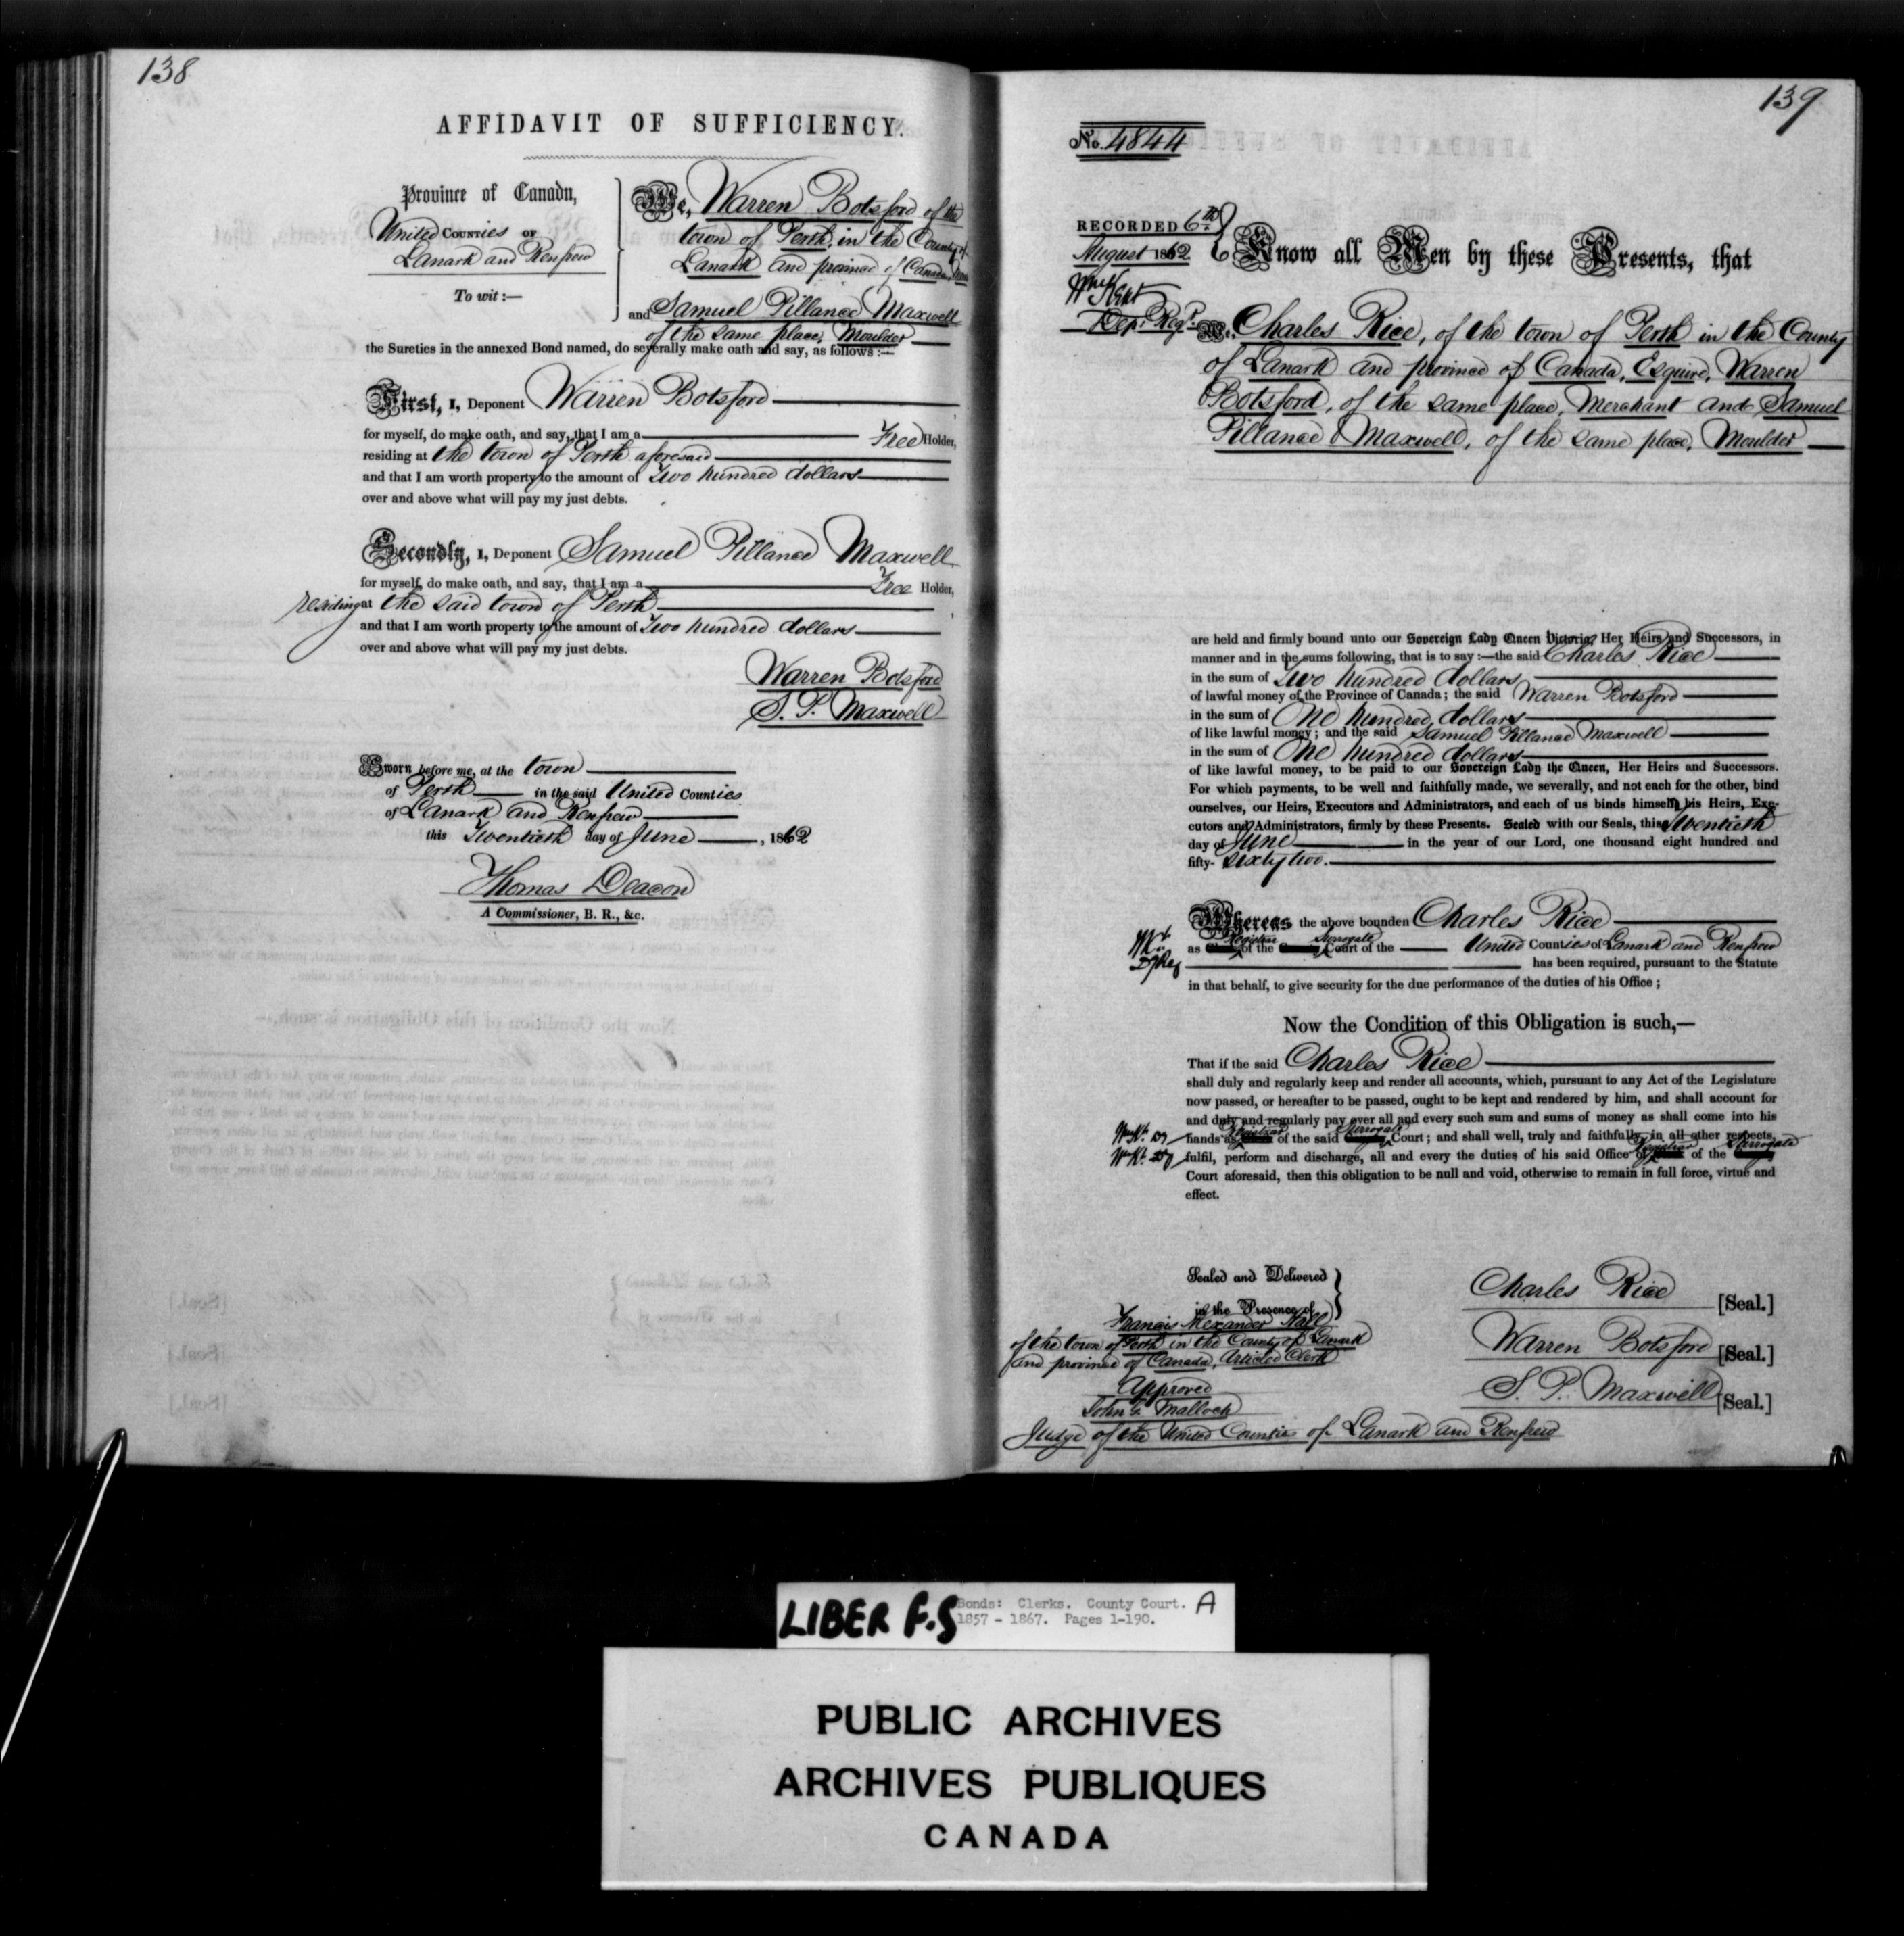 138
AFFIDAVIT OF SUFFICIENCY.
Province of Canada,
United Counties OF
Lanark and Renfrew
To wit :—
We, Warren Botsford of the
town of Perth, in the County of
Lanark and province of Canada,
and Samuel Pillance Maxwell
of the same place, Moulder
the Sureties in the annexed Bond named, do severally make oath and say, as follows :—
First, I, Deponent Warren Botsford
for myself, do make oath, and say, that I am a Free Holder,
residing at the town of Perth aforesaid
and that I am worth property to the amount of Two hundred dollars
over and above what will pay my just debts.
Secondly, I, Deponent Samuel Pillance Maxwell
for myself, do make oath, and say, that I am a Free Holder,
residing at the said town of Perth
and that I am worth property to the amount of Two hundred dollars
over and above what will pay my just debts.
Warren Botsford
S. P. Maxwell
Sworn before me, at the town
of Perth in the said United Counties
of Lanark and Renfrew
this Twentieth day of June, 1862
Thomas Deacon
A Commissioner, B. R., &c.
139
No. 4844
RECORDED 6th
August 1862
Wm Kent
Dep: Regr.
Know all Men by these Presents, that
We, Charles Rice, of the town of Perth in the County
of Lanark and province of Canada, Esquire, Warren
Botsford, of the same place, Merchant and Samuel
Pillance Maxwell, of the same place, Moulder
are held and firmly bound unto our Sovereign Lady Queen Victoria, Her Heirs and Successors, in
manner and in the sums following, that is to say :—the said Charles Rice
in the sum of Two hundred dollars
of lawful money of the Province of Canada; the said Warren Botsford
in the sum of One hundred dollars
of like lawful money; and the said Samuel Pillance Maxwell
in the sum of One hundred dollars
of like lawful money, to be paid to our Sovereign Lady the Queen, Her Heirs and Successors.
For which payments, to be well and faithfully made, we severally, and not each for the other, bind
ourselves, our Heirs, Executors and Administrators, and each of us binds himself, his Heirs, Exe-
cutors and Administrators, firmly by these Presents. Sealed with our Seals, this Twentieth
day of June in the year of our Lord, one thousand eight hundred and
fifty- sixty two.
Whereas the above bounden Charles Rice
as Registrar of the Surrogate Court of the United Counties of Lanark and Renfrew
has been required, pursuant to the Statute
in that behalf, to give security for the due performance of the duties of his Office ;
Now the Condition of this Obligation is such,—
That if the said Charles Rice
shall duly and regularly keep and render all accounts, which, pursuant to any Act of the Legislature
now passed, or hereafter to be passed, ought to be kept and rendered by him, and shall account for
and duly and regularly pay over all and every such sum and sums of money as shall come into his
hands as Registrar of the said Surrogate Court; and shall well, truly and faithfully, in all other respects,
fulfil, perform and discharge, all and every the duties of his said Office of Registrar of the Surrogate
Court aforesaid, then this obligation to be null and void, otherwise to remain in full force, virtue and
effect.
Sealed and Delivered
in the Presence of
Francis Alexander Hall
of the town of Perth in the County of Lanark
and province of Canada, Articled Clerk
Approved
John G. Malloch
Judge of the United Counties of Lanark and Renfrew
Charles Rice [Seal.]
Warren Botsford [Seal.]
S. P. Maxwell [Seal.]
LIBER F.S
Bonds: Clerks. County Court. A
1857 - 1867. Pages 1-190.
PUBLIC ARCHIVES
ARCHIVES PUBLIQUES
CANADA